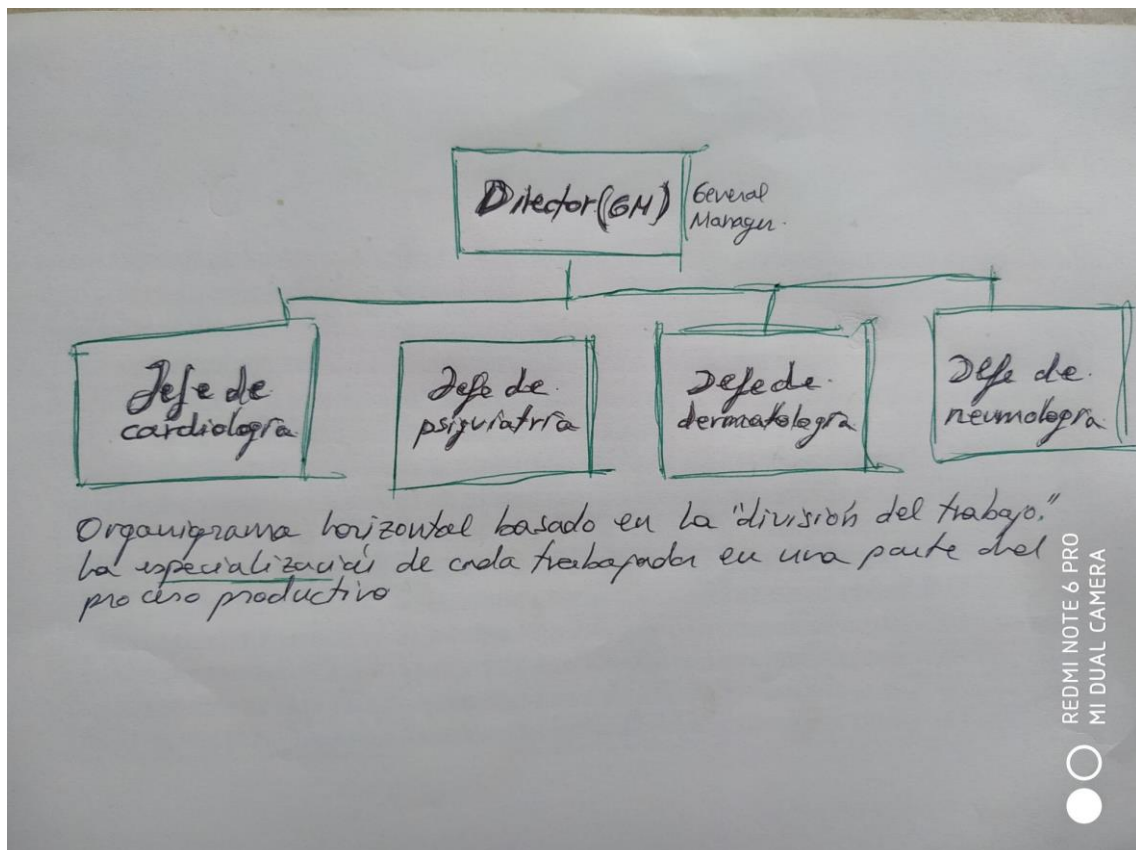 Director (GM)
General
Manager.
Jefe de
cardiología
Jefe de
psiquiatría
Jefe de
dermatología
Jefe de
neumología
Organigrama horizontal basado en la "división del trabajo."
La especialización de cada trabajador en una parte del
proceso productivo
REDMI NOTE 6 PRO
MI DUAL CAMERA